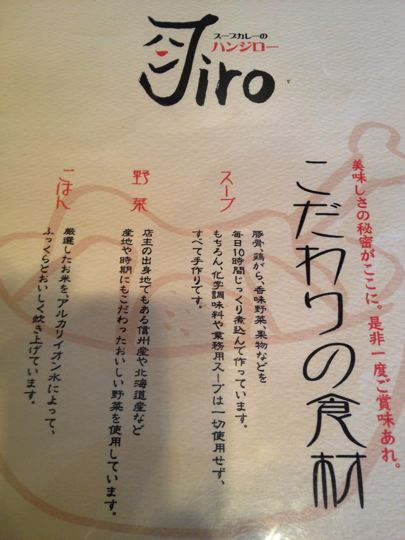 スープカレーの
ハンジロー
Jiro
美味しさの秘密がここに。是非一度ご賞味あれ。
こだわりの食材
スープ
豚骨、鶏がら、香味野菜、果物などを
毎日10時間じっくり煮込んで作っています。
もちろん、化学調味料や業務用スープは一切使用せず、
すべて手作りです。
野菜
店主の出身地でもある信州産や北海道産など
産地や時期にもこだわったおいしい野菜を使用しています。
ごはん
厳選したお米を、アルカリイオン水によって、
ふっくらとおいしく炊き上げています。